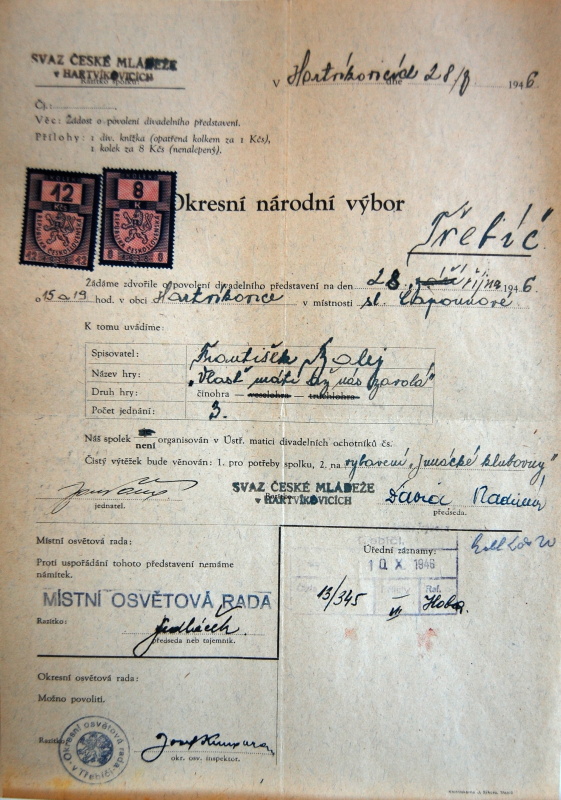 SVAZ ČESKÉ MLÁDEŽE
v HARTVÍKOVICÍCH
V Hartvíkovicích dne 28/8 1946.
Razítko spolku
Čj.:
Věc: Žádost o povolení divadelního představení.
Přílohy: 1 div. knížka (opatřená kolkem za 1 Kčs),
1 kolek za 8 Kčs (nenalepený).
12
Kčs
REPUBLIKA ČESKOSLOVENSKÁ
12 12
8
K
REPUBLIKA ČESKOSLOVENSKÁ
8 8
Okresní národní výbor
Třebíč.
Žádáme zdvořile o povolení divadelního představení na den 28. září října 1946
o 15 a 19 hod. v obci Hartvíkovice v místnosti sl.
K tomu uvádíme:
Spisovatel: František
Název hry: „Vlast máti až nás zavolá"
Druh hry: činohra — veselohra — truchlohra
Počet jednání: 3.
Náš spolek není organisován v Ústř. matici divadelních ochotníků čs.
Čistý výtěžek bude věnován: 1. pro potřeby spolku, 2. na vybavení „Junácké klubovny"
SVAZ ČESKÉ MLÁDEŽE
v HARTVÍKOVICÍCH
David
jednatel.
předseda.
Místní osvětová rada:
Proti uspořádání tohoto představení nemáme
námitek.
MÍSTNÍ OSVĚTOVÁ RADA
Razítko: Jedláček.
předseda neb tajemník.
Úřední záznamy:
10 X. 1946
Ref.
13/345 VII
Okresní osvětová rada:
Možno povoliti.
Razítko:
Okresní osvětová rada v Třebíči
Josef
okr. osv. inspektor.